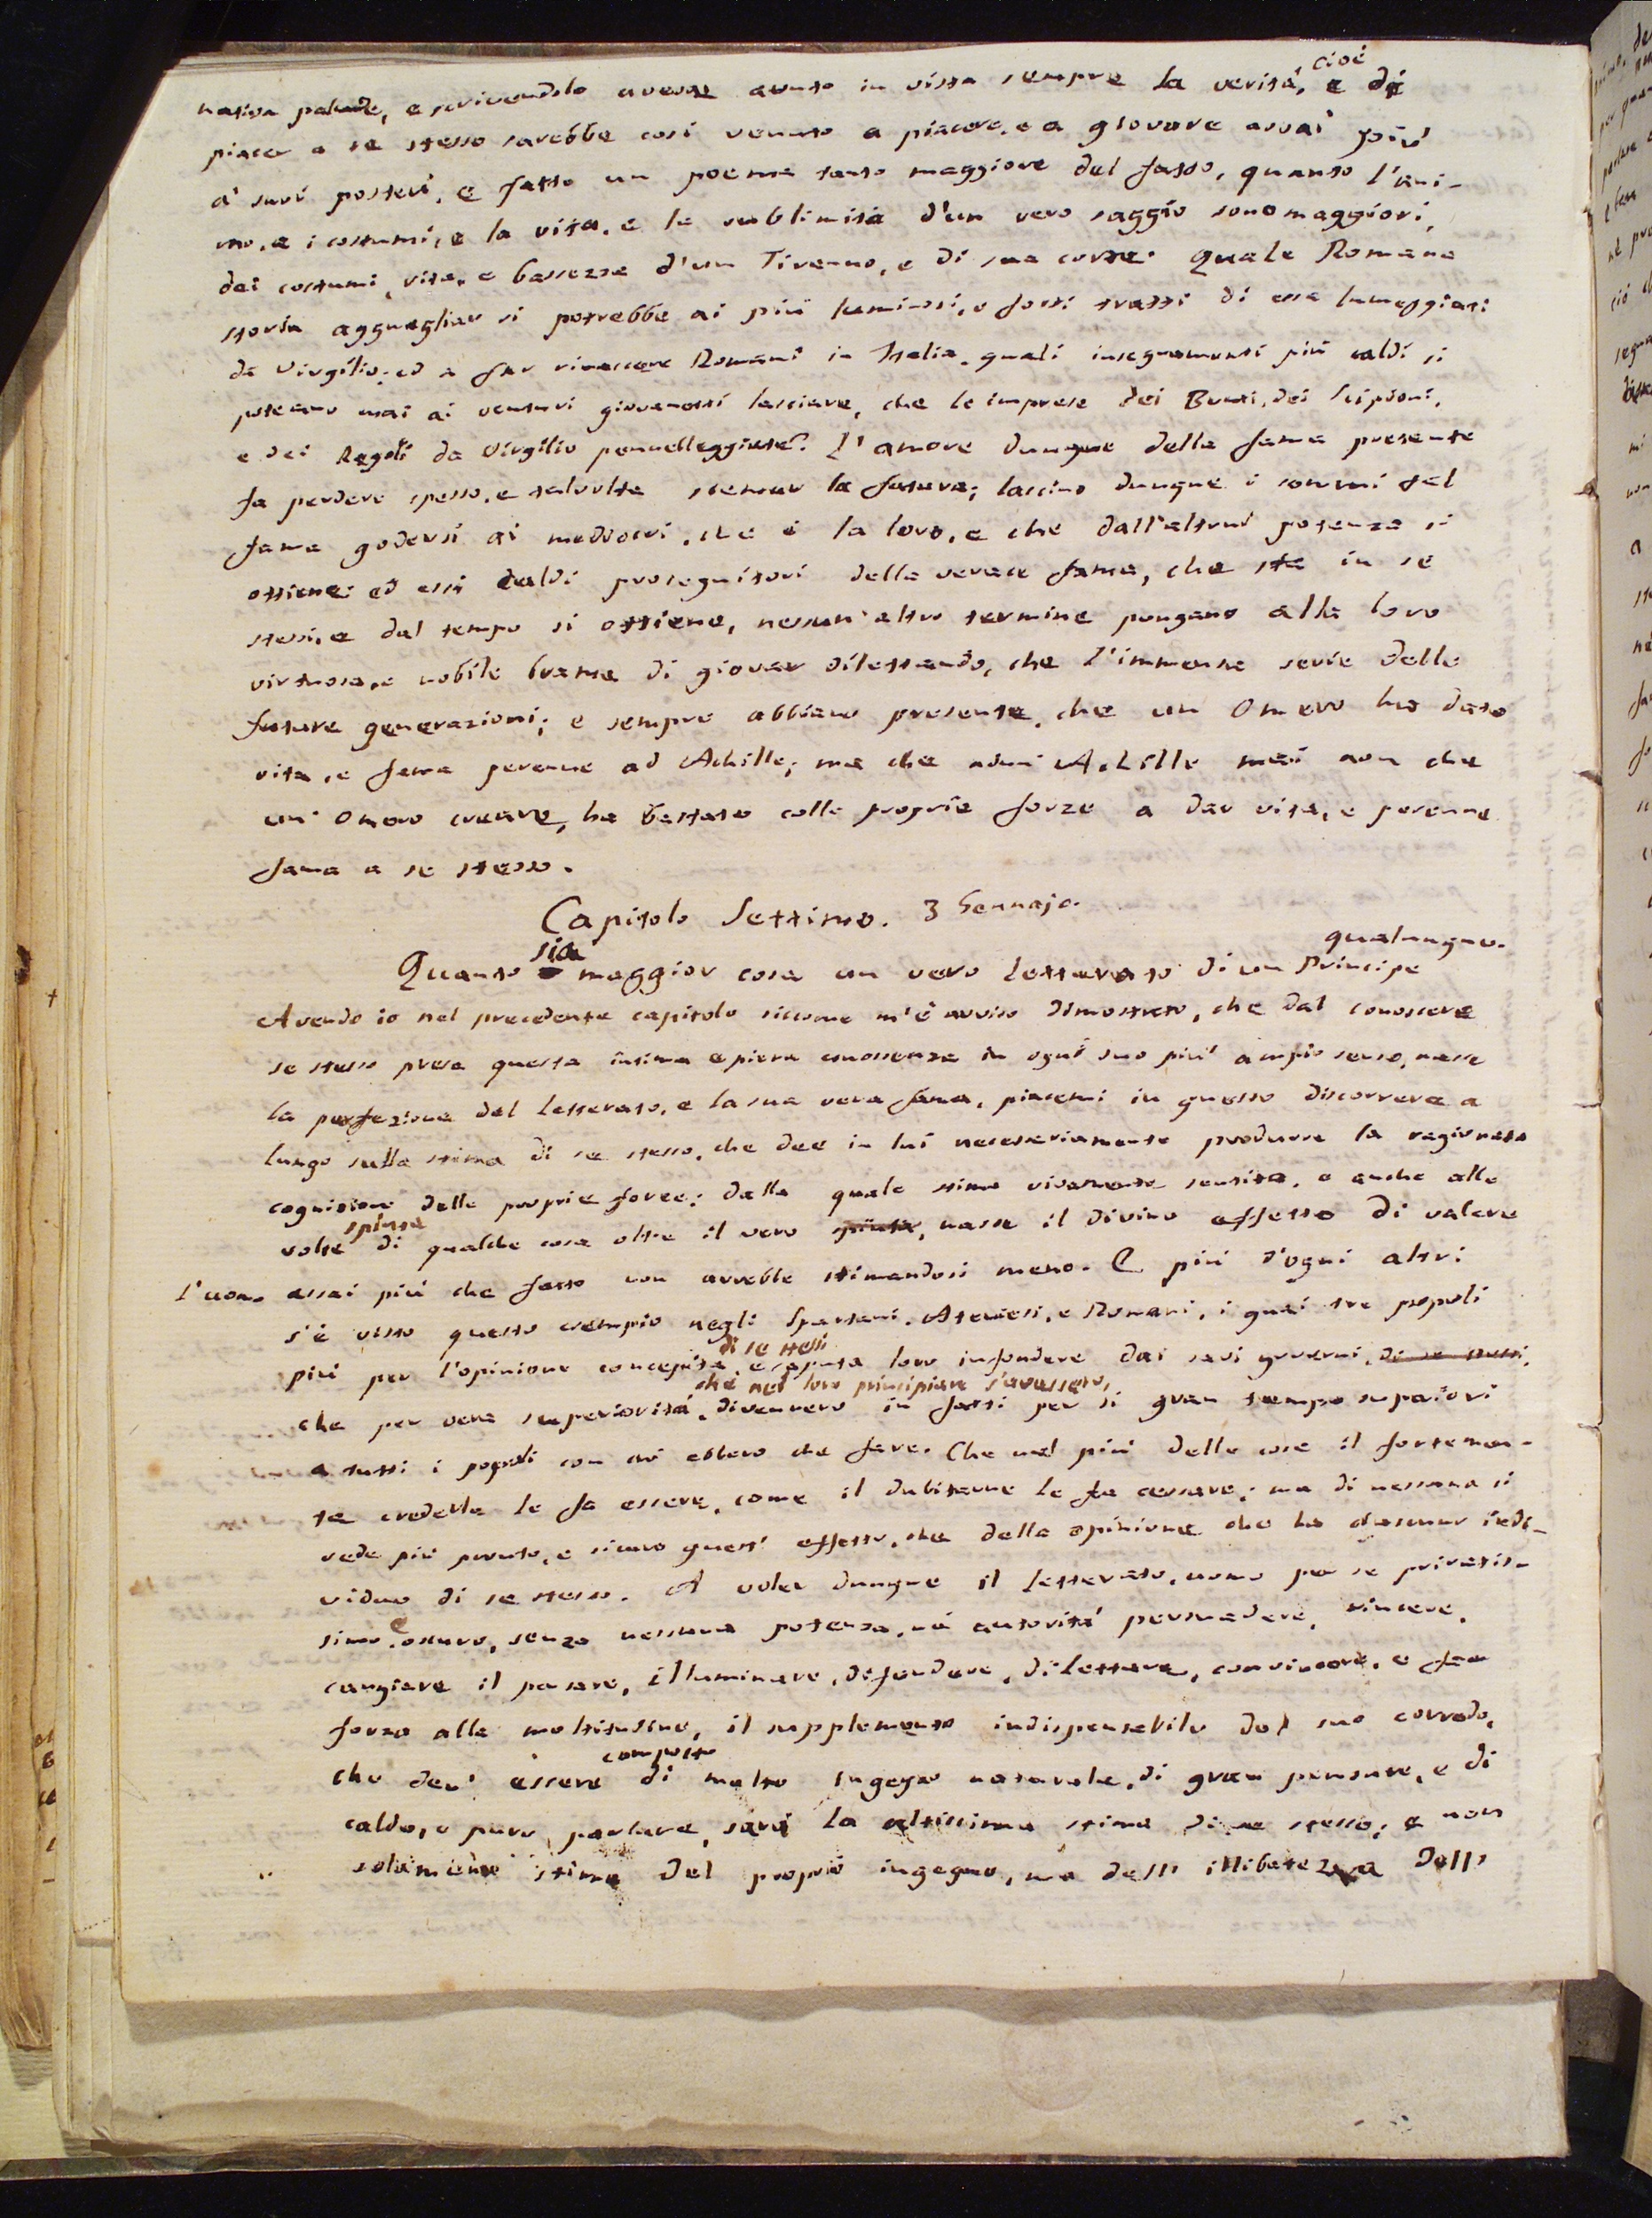 cioè
nativa palude, e scrivendolo avesse avuto in vista sempre la verità, e di
piacer a se stesso sarebbe così venuto a piacere, e a giovare assai più
a' suoi posteri, e fatto un poema tanto maggiore del fatto, quanto l'ani-
mo, e i costumi, e la vita, e la sublimità d'un vero saggio sono maggiori,
dei costumi, vita, e bassezza d'un Tiranno, e di sua corte. Quale Romana
storia agguagliar si potrebbe ai più luminosi, e forti tratti di essa lumeggiati
da Virgilio: ed a far rinascere Romani in Italia, quali insegnamenti più caldi si
poteano mai ai venturi giovanetti lasciare, che le imprese dei Bruti, dei Scipioni,
e dei Regoli da Virgilio pennelleggiate? L'amore dunque della fama presente
fa perdere spesso, e talvolta scemar la futura; lascino dunque i sommi tal
fama godersi ai mediocri, che è la loro, e che dall'altrui potenza si
ottiene: ed essi caldi proseguitori della verace fama, che sta in se
stessi, e dal tempo si ottiene, nessun'altro termine pongano alla loro
virtuosa, e nobile brama di giovar dilettando, che l'immensa serie delle
future generazioni; e sempre abbiano presente, che un Omero ha dato
vita, e fama perenne ad Achille; ma che niun Achille mai non che
un' Omero creare, ha bastato colle proprie forze a dar vita, e perenne
fama a se stesso.
Capitolo Settimo. 3 Gennajo.
Quanto sia maggior cosa un vero Letterato di un Principe qualunque.
Avendo io nel precedente capitolo siccome m'è avviso dimostrato, che dal conoscere
se stesso presa questa intima e piena conoscenza in ogni suo più ampio senso, nasce
la perfezione del Letterato, e la sua vera fama, piacemi in questo discorrere a
lungo sulla stima di se stesso, che dee in lui necessariamente produrre la ragionata
cognizione delle proprie forze: dalla quale stima vivamente sentita, e anche alle
volte spinta di qualche cosa oltre il vero spinta, nasce il divino effetto di valere
l'uomo assai più che fatto non avrebbe stimandosi meno. E più d'ogni altri
s'è visto questo esempio negli Spartani, Ateniesi, e Romani, i quai tre popoli
più per l'opinione concepita di se stessi, e saputa loro infondere dai savi governi, di se stessi,
che nel loro principiare s'avessero,
che per vera superiorità, divennero in fatti per sì gran tempo superiori
a tutti i popoli con cui ebbero che fare. Che nel più delle cose il fortemen-
te crederle le fa essere, come il dubitarne le fa cessare; ma di nessuna si
vede più pronto, e sicuro quest' effetto, che della opinione che ha ciascuno indi-
viduo di se stesso. A voler dunque il letterato, uomo per se privatis-
simo, e oscuro, senza nessuna potenza, nè autorità persuadere, vincere,
cangiare il pensare, illuminare, difendere, dilettare, convincere, e far
forza alla moltitudine, il supplemento indispensabile del suo corredo,
che dev' essere composto di molto ingegno naturale, di gran pensare, e di
caldo, e puro parlare, sarà la altissima stima di se stesso; e non
solamente stima del proprio ingegno, ma dell' illibatezza dell'